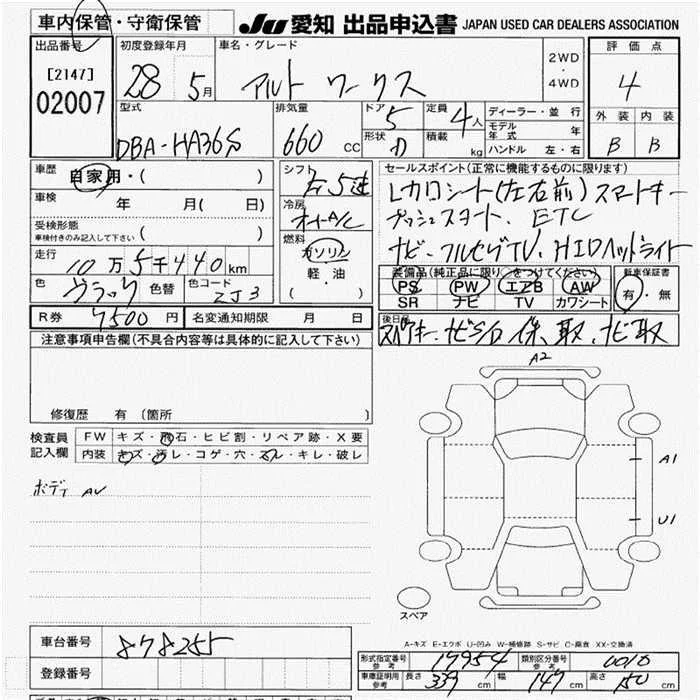 車内保管・守衛保管
JU 愛知 出品申込書 JAPAN USED CAR DEALERS ASSOCIATION
出品番号
[2147]
02007
初度登録年月
28 5月
車名・グレード
アルト ワークス
2WD
・
4WD
評価点
4
外装 内装
B B
型式
DBA-HA36S
排気量
660 CC
ドア 5
形状
定員 4人
積載 kg
ディーラー・並行
モデル年式 年
ハンドル 左・右
車歴
自家用・( )
車検
年 月( 日)
受検形態
車検付きのみ記入して下さい ( )
走行
10万5千440km
色 ブラック 色替 色コード ZJ3
シフト
5速
冷房
オートA/C
燃料
ガソリン
軽・油
( )
セールスポイント(正常に機能するものに限ります)
レカロシート(左右前)スマートキー
プッシュスタート、ETC
ナビ・フルセグTV、HIDヘッドライト
装備品(純正品に限り○をつけてください)
PS PW エアB AW
SR ナビ TV カワシート
新車保証書
有・無
R券 7500円 名変通知期限 月 日
後日品
スペアキー、ナビSD 保、取、ナビ取
注意事項申告欄(不具合内容等は具体的に記入して下さい)
修復歴 有(箇所 )
検査員
記入欄
FW キズ・飛石・ヒビ割・リペア跡・X要
内装 キズ・汚レ・コゲ・穴・スレ・キレ・破レ
ボディ AU
A2
A1
U1
スペア
A-キズ E-エクボ U-凹み W-補修跡 S-サビ C-腐食 XX-交換済
車台番号 878255
登録番号
形式指定番号 参考 17954 類別区分番号 参考 0010
車庫証明用 参考 長さ 339cm 幅 147cm 高さ 150cm